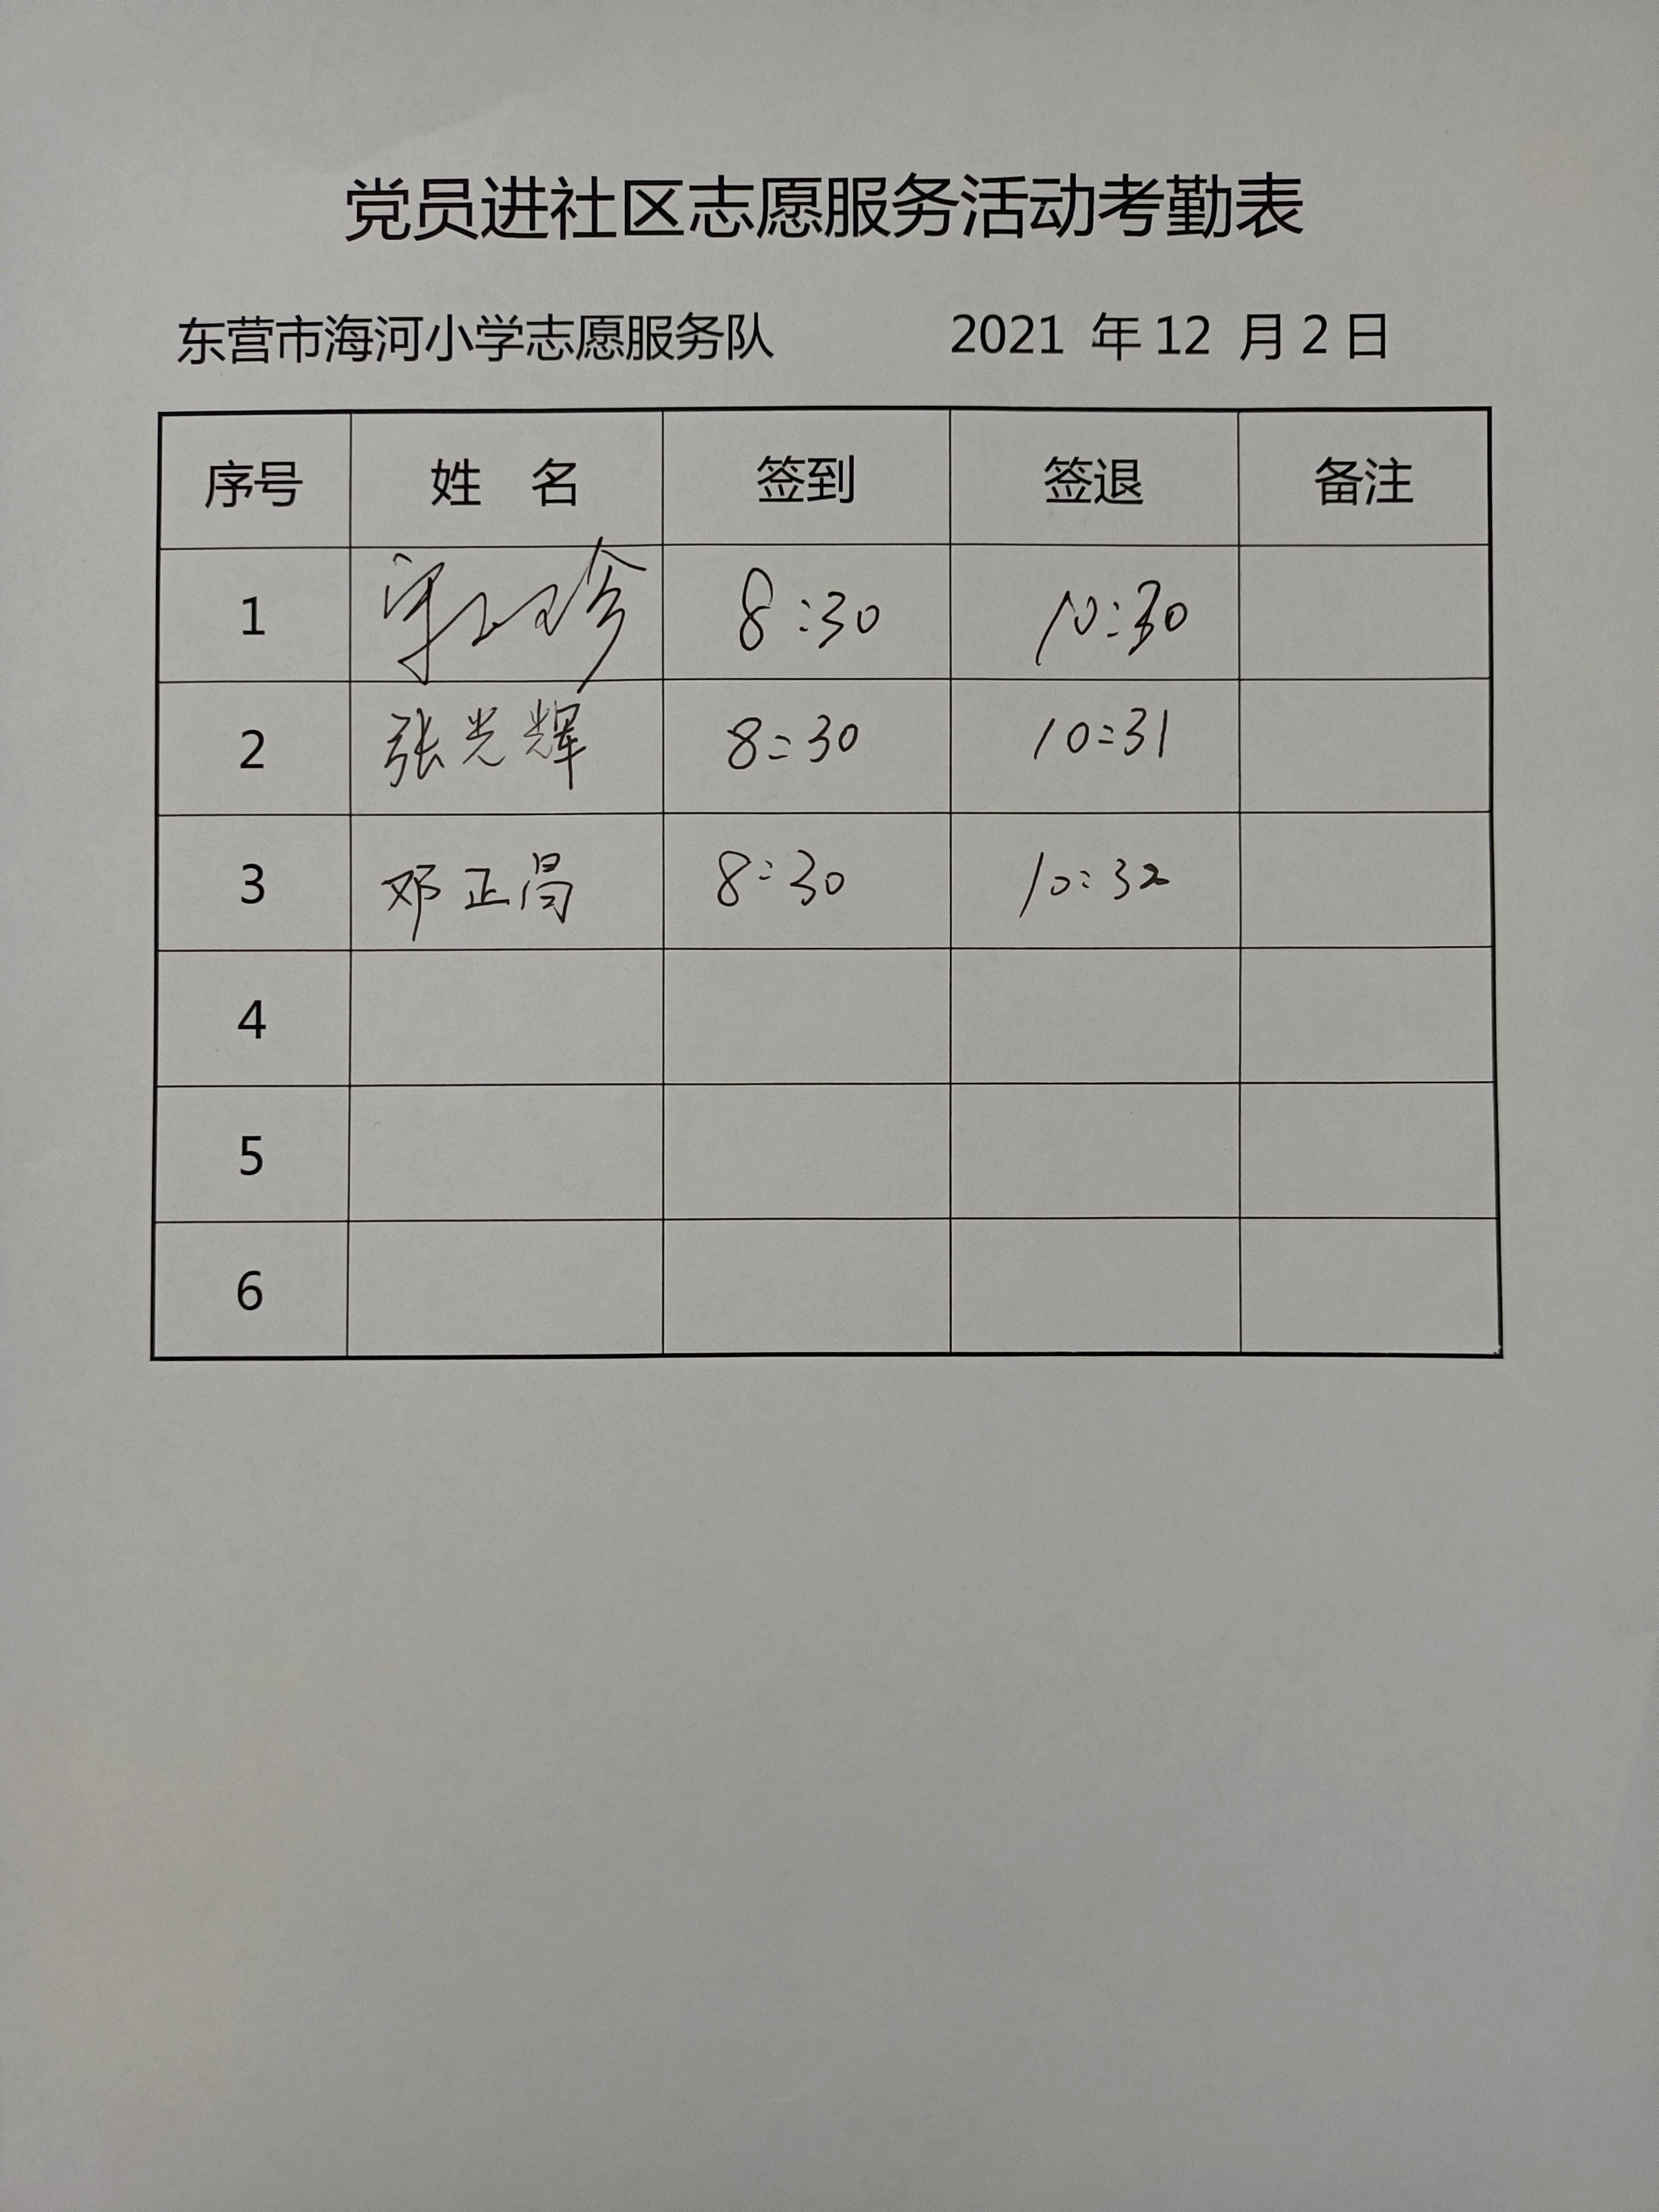 党员进社区志愿服务活动考勤表
东营市海河小学志愿服务队 2021 年 12 月 2 日
序号 姓 名 签到 签退 备注
1 8:30 10:30
2 张光辉 8:30 10:31
3 邓正昌 8:30 10:32
4
5
6